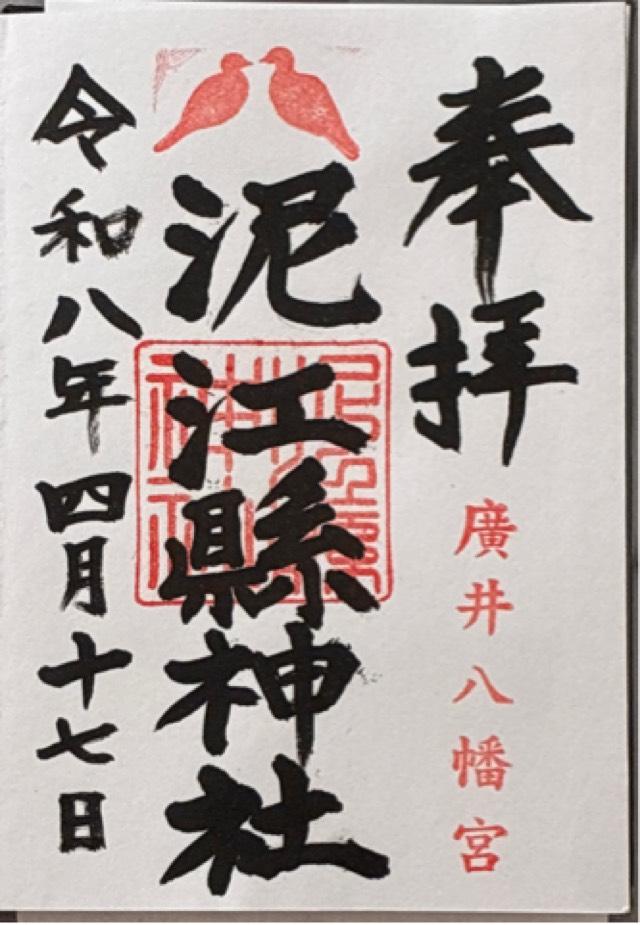 奉拝
廣井八幡宮
泥江縣神社
令和八年四月十七日